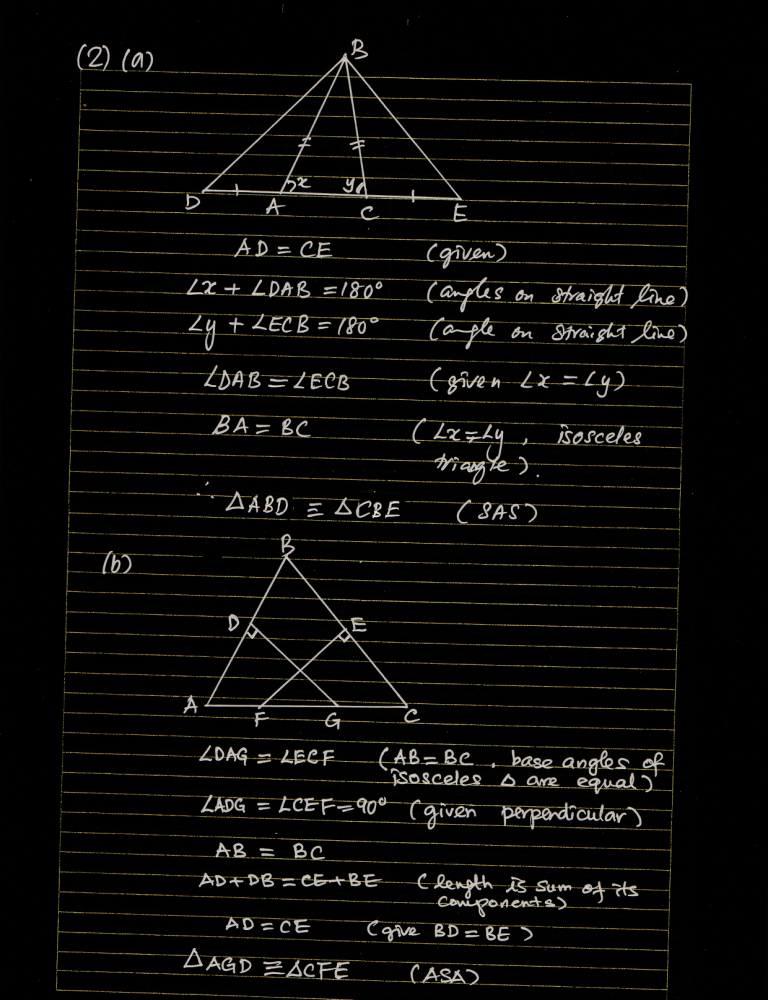 (2) (a)
B
x y
D A C E
AD = CE (given)
∠x + ∠DAB = 180° (angles on straight line)
∠y + ∠ECB = 180° (angle on straight line)
∠DAB = ∠ECB (given ∠x = ∠y)
BA = BC (∠x = ∠y , isosceles
triangle).
∴ △ABD ≡ △CBE (SAS)
(b)
B
D E
A F G C
∠DAG = ∠ECF (AB = BC , base angles of
isosceles △ are equal)
∠ADG = ∠CEF = 90° (given perpendicular)
AB = BC
AD + DB = CE + BE (length is sum of its
components)
AD = CE (give BD = BE)
△AGD ≡ △CFE (ASA)